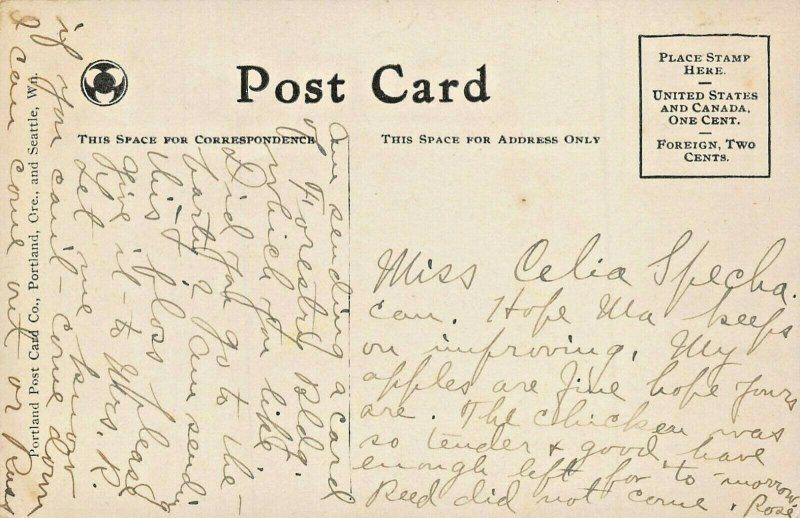 Post Card
THIS SPACE FOR CORRESPONDENCE
THIS SPACE FOR ADDRESS ONLY
PLACE STAMP
HERE.
UNITED STATES
AND CANADA,
ONE CENT.
FOREIGN, TWO
CENTS.
Portland Post Card Co., Portland, Ore., and Seattle, Wn.
Miss Celia Specha.
Am sending a card
of Forestry Bldg.
which you like.
Did you go to the
party? I am sending
this floss please
give it to Mrs. R.
Let me know
if you can't come down
I can come out or
can. Hope Ma keeps
on improving. My
apples are fine hope yours
are. The chicken was
so tender & good, have
enough left for to-morrow.
Reed did not come. Rose